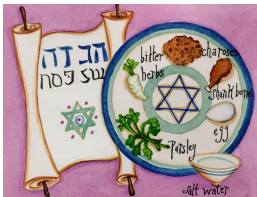 הגדה
של פסח
bitter
herbs
charoses
shank bone
egg
Parsley
Salt water